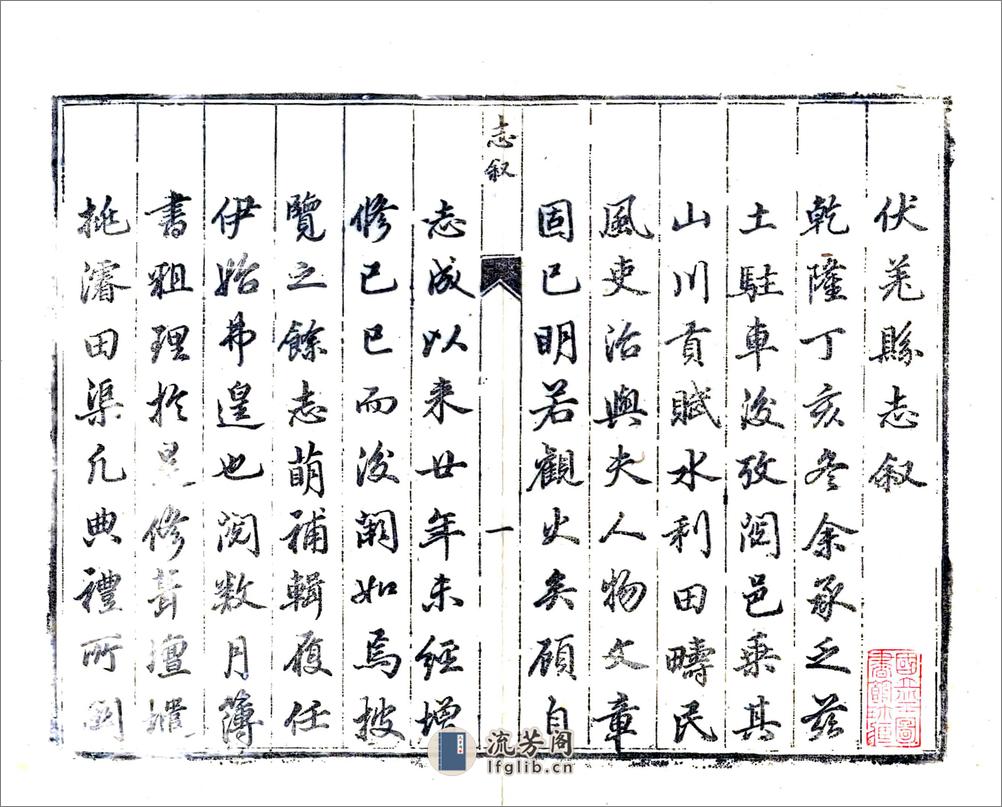 伏羌縣志叙
乾隆丁亥冬余承乏茲
土駐車後攷閱邑乘其
山川貢賦水利田疇民
風吏治與夫人物文章
固已明若觀火矣顧自
志叙
一
志成以來廿年未經增
修已巳而後闕如焉披
覽之餘志萌補輯履任
伊始弗遑也閱數月簿
書粗理於是修葺壇壝
挑濬田渠凡典禮所
國立圖
書館珍藏
流芳阁
lfglib.cn